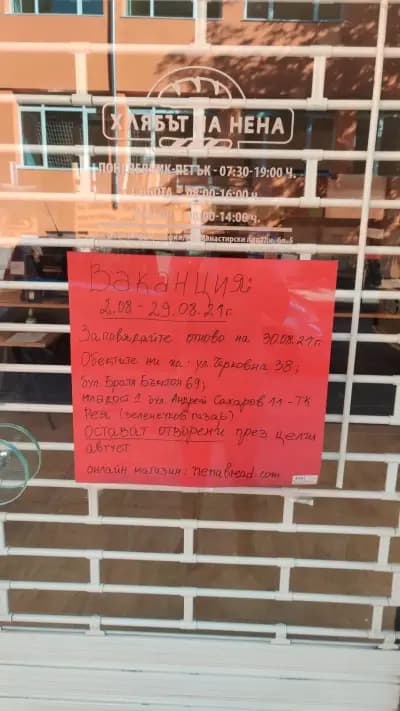 ХЛЯБЪТ НА НЕНА
ПОНЕДЕЛНИК-ПЕТЪК - 07:30-19:00 Ч.
08:00-16:00 ч.
00-14:00 ч.
Ваканция:
2.08 - 29.08.21 г.
Заповядайте отново на 30.08.21 г.
Обектите ни на: ул. Църковна 38;
бул. Братя Бъкстон 69;
младост 1 бул. Андрей Сахаров 11 - ТК
Рея (зеленчуков пазар)
Остават отворени през целия
август
онлайн магазин: nenabread.com